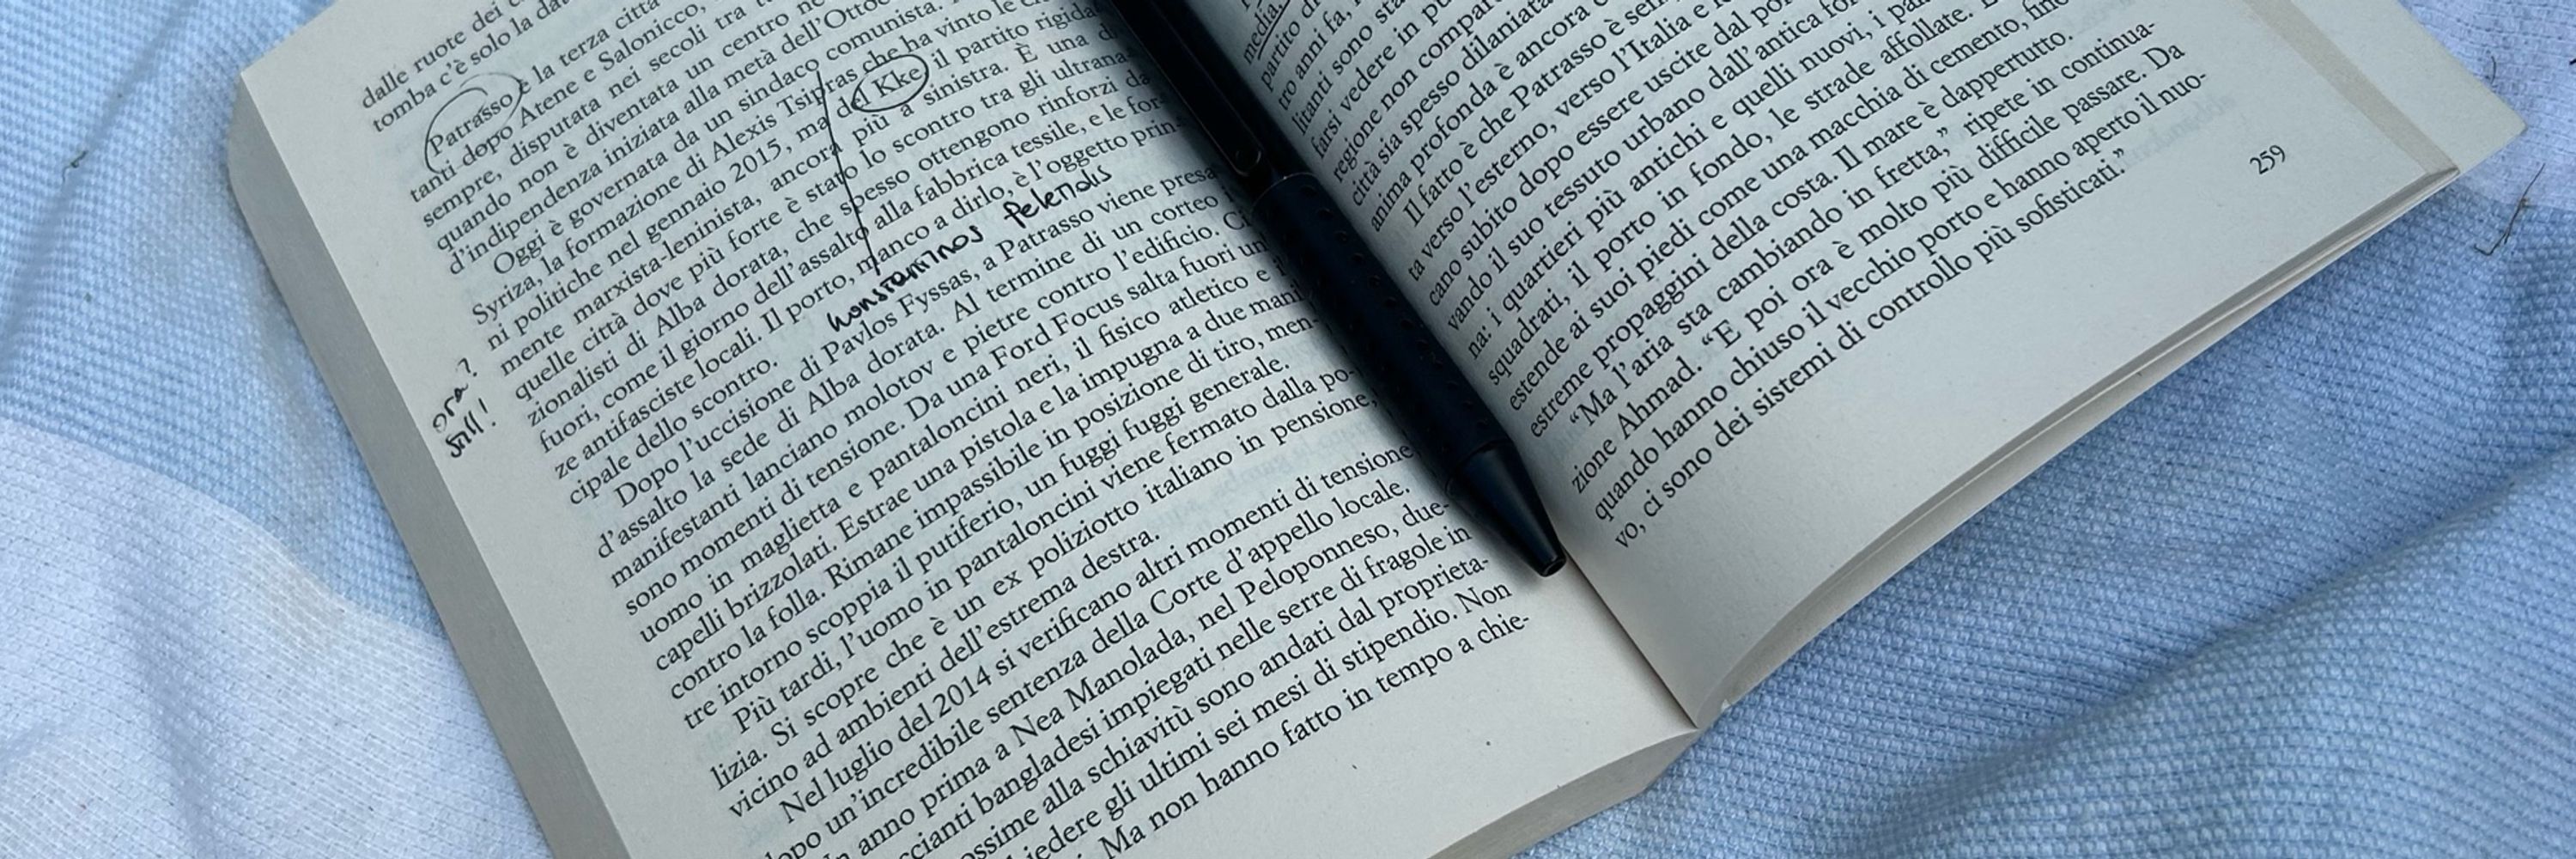 dalle ruote dei
tomba c'è solo la
Patrasso è la terza città
tanti dopo Atene e Salonicco,
sempre, disputata nei secoli tra
quando non è diventata un centro
d'indipendenza iniziata alla metà dell'Ottoc
Oggi è governata da un sindaco comunista.
Syriza, la formazione di Alexis Tsipras che ha vinto le
ni politiche nel gennaio 2015, ma del Kke, il partito rigida-
mente marxista-leninista, ancora più a sinistra. È una
quelle città dove più forte è stato lo scontro tra gli ultrana-
zionalisti di Alba dorata, che spesso ottengono rinforzi da
fuori, come il giorno dell'assalto alla fabbrica tessile, e le for-
ze antifasciste locali. Il porto, manco a dirlo, è l'oggetto prin-
cipale dello scontro.
konstantinos Peletidis
ora?
still!
Dopo l'uccisione di Pavlos Fyssas, a Patrasso viene presa
d'assalto la sede di Alba dorata. Al termine di un corteo i
manifestanti lanciano molotov e pietre contro l'edificio. Ci
sono momenti di tensione. Da una Ford Focus salta fuori un
uomo in maglietta e pantaloncini neri, il fisico atletico e i
capelli brizzolati. Estrae una pistola e la impugna a due mani
contro la folla. Rimane impassibile in posizione di tiro, men-
tre intorno scoppia il putiferio, un fuggi fuggi generale.
Più tardi, l'uomo in pantaloncini viene fermato dalla po-
lizia. Si scopre che è un ex poliziotto italiano in pensione,
vicino ad ambienti dell'estrema destra.
Nel luglio del 2014 si verificano altri momenti di tensione
dopo un'incredibile sentenza della Corte d'appello locale.
anno prima a Nea Manolada, nel Peloponneso, due-
ccianti bangladesi impiegati nelle serre di fragole in
ossime alla schiavitù sono andati dal proprieta-
iedere gli ultimi sei mesi di stipendio. Non
Ma non hanno fatto in tempo a chie-
media.
partito
tro anni fa,
litanti sono
farsi vedere in
regione non
città sia spesso dilaniata
anima profonda è ancora
Il fatto è che Patrasso è
ta verso l'esterno, verso l'Italia e
cano subito dopo essere uscite dal
vando il suo tessuto urbano dall'antica
na: i quartieri più antichi e quelli nuovi, i
squadrati, il porto in fondo, le strade affollate.
estende ai suoi piedi come una macchia di cemento, fino
estreme propaggini della costa. Il mare è dappertutto.
"Ma l'aria sta cambiando in fretta," ripete in continua-
zione Ahmad. "E poi ora è molto più difficile passare. Da
quando hanno chiuso il vecchio porto e hanno aperto il nuo-
vo, ci sono dei sistemi di controllo più sofisticati."
259